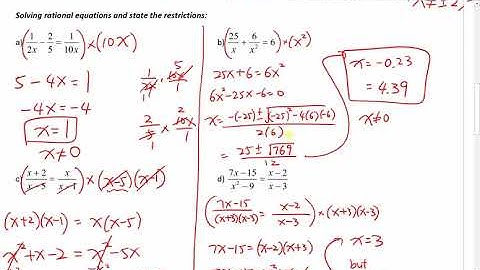 x≠±2,
Solving rational equations and state the restrictions:
a) (1/2x - 2/5 = 1/10x) × (10x)
5 - 4x = 1
-4x = -4
x = 1
x≠0
1/2x × 10x/1 5
2/5 × 10x/1 2
b) (25/x + 6/x² = 6) × (x²)
25x + 6 = 6x²
6x² - 25x - 6 = 0
x = -(-25) ± √(-25)² - 4(6)(-6) / 2(6)
= 25 ± √769 / 12
x = -0.23
= 4.39
x≠0
c) (x+2/x-5 = x/x-1) × (x-5)(x-1)
(x+2)(x-1) = x(x-5)
x² + x - 2 = x² - 5x
d) 7x-15/x²-9 = x-2/x-3
(7x-15/(x+3)(x-3) = x-2/x-3) × (x+3)(x-3)
7x-15 = (x-2)(x+3)
x = 3
but